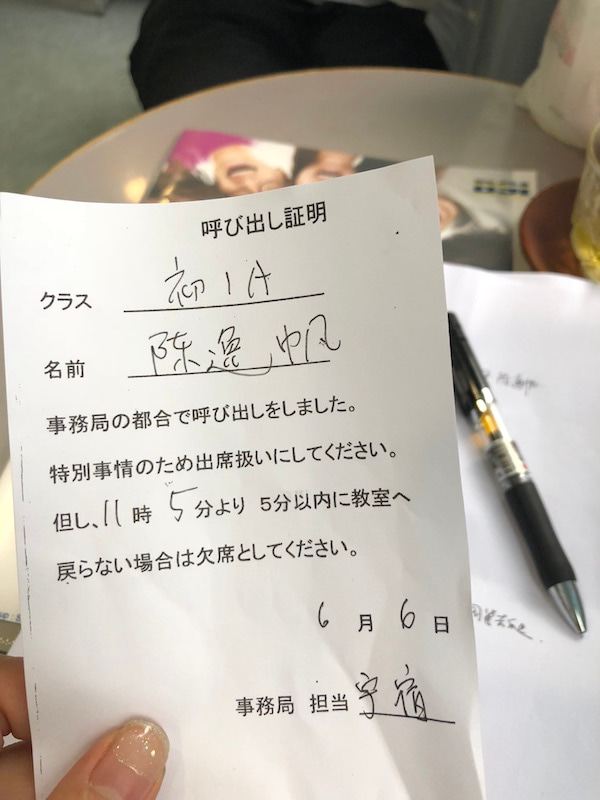 呼び出し証明
クラス 初1A
名前 陈逸帆
事務局の都合で呼び出しをしました。
特別事情のため出席扱いにしてください。
但し、11時 5分より 5分以内に教室へ
戻らない場合は欠席としてください。
6 月 6 日
事務局 担当 宇宿